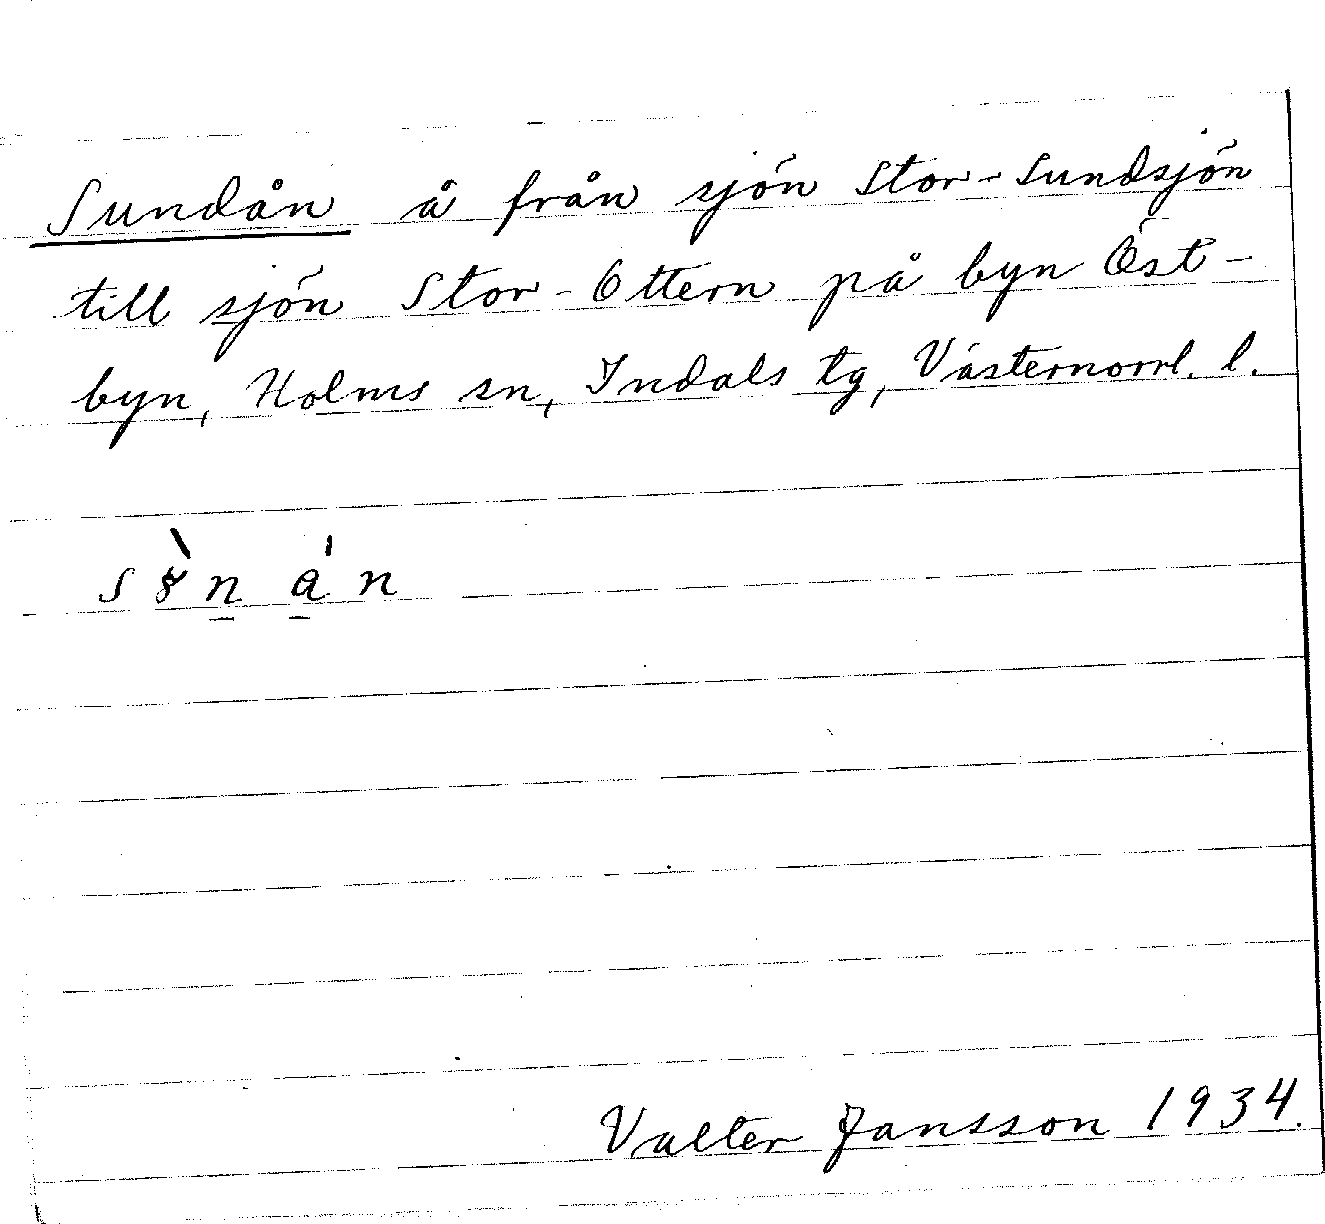 Sundån å från sjön Stor-Sundsjön
till sjön Stor-Ottern på byn Öst-
byn, Holms sn, Indals tg, Västernorrl. l.
Valter Jansson 1934.